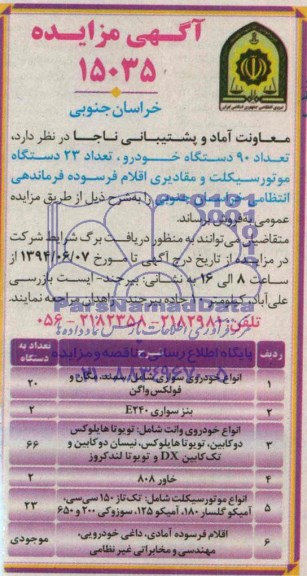 آگهی مزایده
۱۵۰۳۵
خراسان جنوبی
معاونت آماد و پشتیبانی ناجا در نظر دارد،
تعداد ۹۰ دستگاه خودرو، تعداد ۲۳ دستگاه
موتورسیکلت و مقادیری اقلام فرسوده فرماندهی
انتظامی خراسان جنوبی را به‌شرح ذیل از طریق مزایده
عمومی به‌فروش برساند.
متقاضیان می‌توانند به منظور دریافت برگ شرایط شرکت
در مزایده از تاریخ درج آگهی تا مورخ ۱۳۹۴/۰۶/۰۷ از
ساعت ۸ الی ۱۶ به نشانی: بیرجند- ایست بازرسی
علی‌آباد، کیلومتر جاده بیرجند- زاهدان مراجعه نمایند.
تلفن: ۲۱۸۲۹۸۴- ۲۱۸۲۳۵۸- ۰۵۶
ParsNamadData
پایگاه اطلاع رسانی مناقصه و مزایده
ردیف شرح تعداد به دستگاه
۱ انواع خودروی سواری شامل: سمند، پیکان و فولکس‌واگن ۲۰
۲ بنز سواری E۲۴۰ ۲
۳ انواع خودروی وانت شامل: تویوتا هایلوکس دوکابین، تویوتا هایلوکس، نیسان دوکابین و تک‌کابین DX و تویوتا لندکروز ۶۶
۴ خاور ۸۰۸ ۲
۵ انواع موتورسیکلت شامل: تک‌تاز ۱۵۰ سی‌سی، آمیکو گلسار ۱۸۰، آمیکو ۱۲۵، سوزوکی ۲۰۰ و ۶۵۰ ۲۳
۶ اقلام فرسوده آمادی، داغی خودرویی، مهندسی و مخابراتی غیر نظامی موجودی